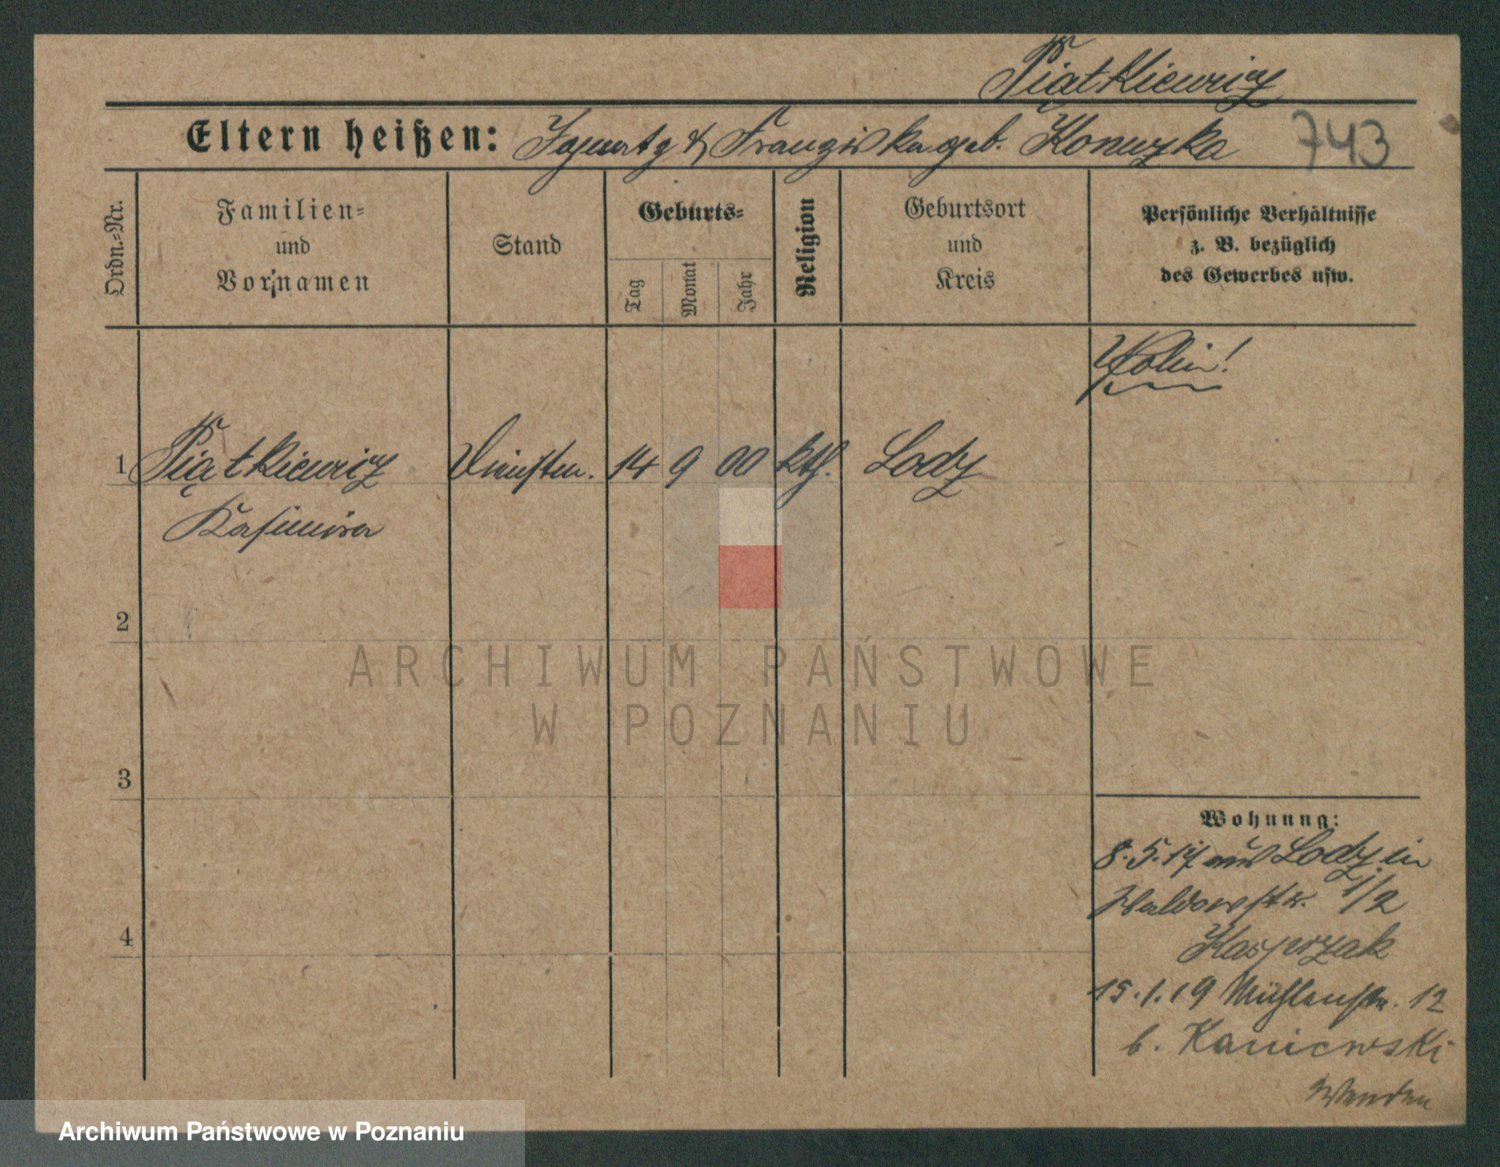 Piątkiewicz
Eltern heißen: Ignatz & Franziska geb. Konuzka
743
Ordn.-Nr.
Familien-
und
Vornamen
Stand
Geburts-
Tag
Monat
Jahr
Religion
Geburtsort
und
Kreis
Persönliche Verhältnisse
z. B. bezüglich
des Gewerbes usw.
Polin!
1 Piątkiewicz 14 9 00 kth. Lodz
Kasimira
2
3
4
Wohnung:
8.5.17 aus Lodz in
Waldowstr. 1/2
Kasprzak
15.1.19 Mühlenstr. 12
b. Kaniewski
Wenden
ARCHIWUM PAŃSTWOWE
W POZNANIU
Archiwum Państwowe w Poznaniu